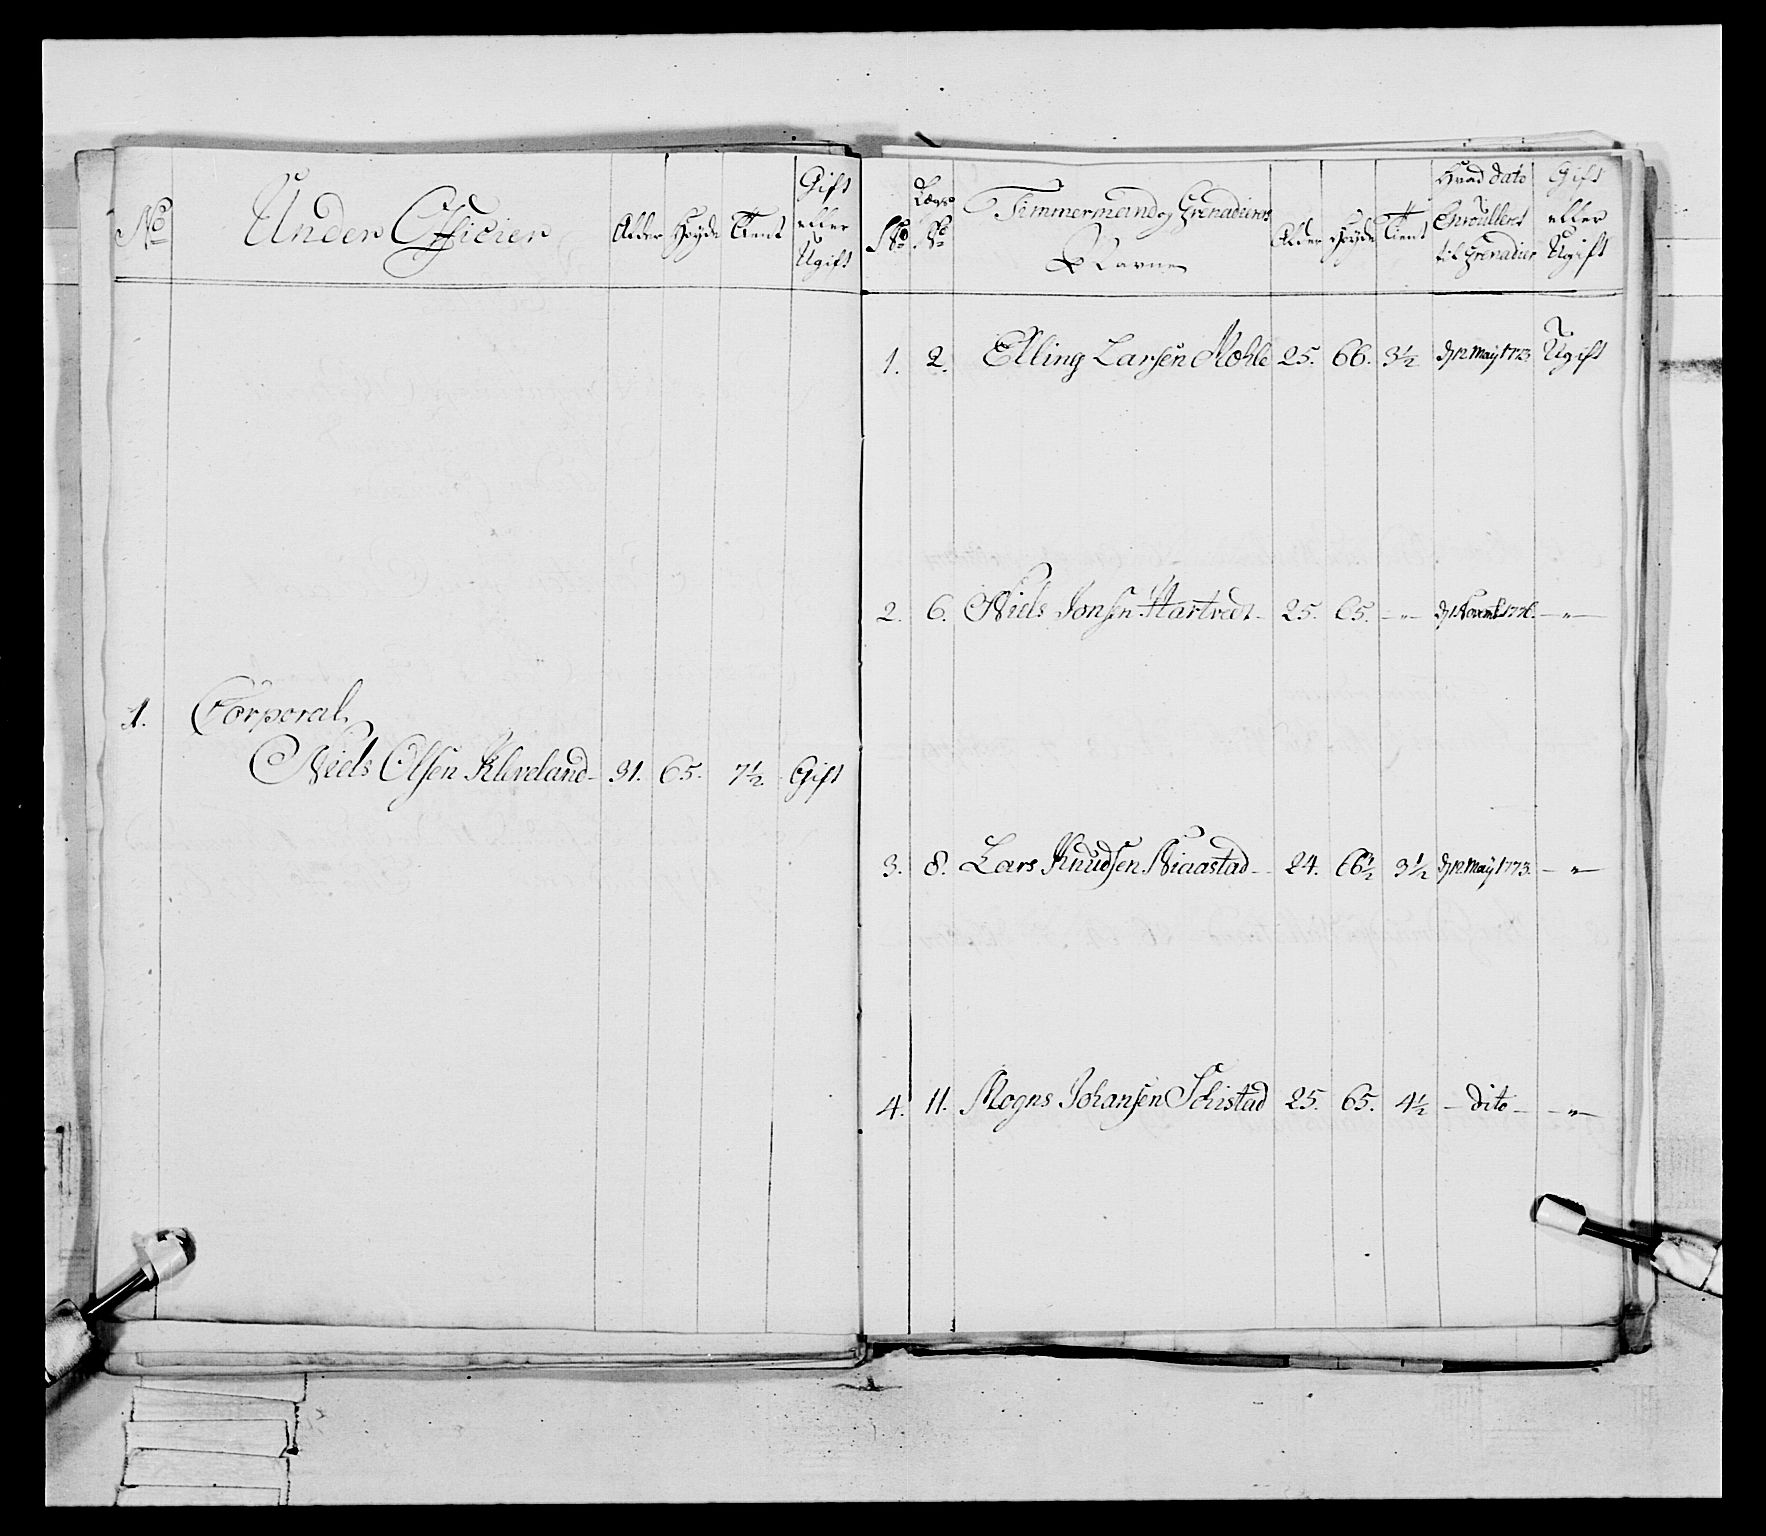 No
Under Officier
Alder
Høyde
Tient
Gift
eller
Ugift
1.
Corporal
Niels Olsen Kleveland 31. 65. 7½ Gift
No
Lægs
No
Timmermænd og Grenadierers
Navne
Alder
Høyde
Tient
Hvad dato
Enroullert
til Grenadier
Gift
eller
Ugift
1. 2. Elling Larsen Mohle 25. 66. 3½ d 12 May 1773. Ugift
2. 6. Niels Jonsen Hartvedt 25. 65. —"— d 1. Novemb. 1776. —"—
3. 8. Lars Knudsen Niaastad 24. 66½ 3½ d 12 May 1773. —"—
4. 11. Mogns Johansen Schistad 25. 65. 4½ — dito — —"—